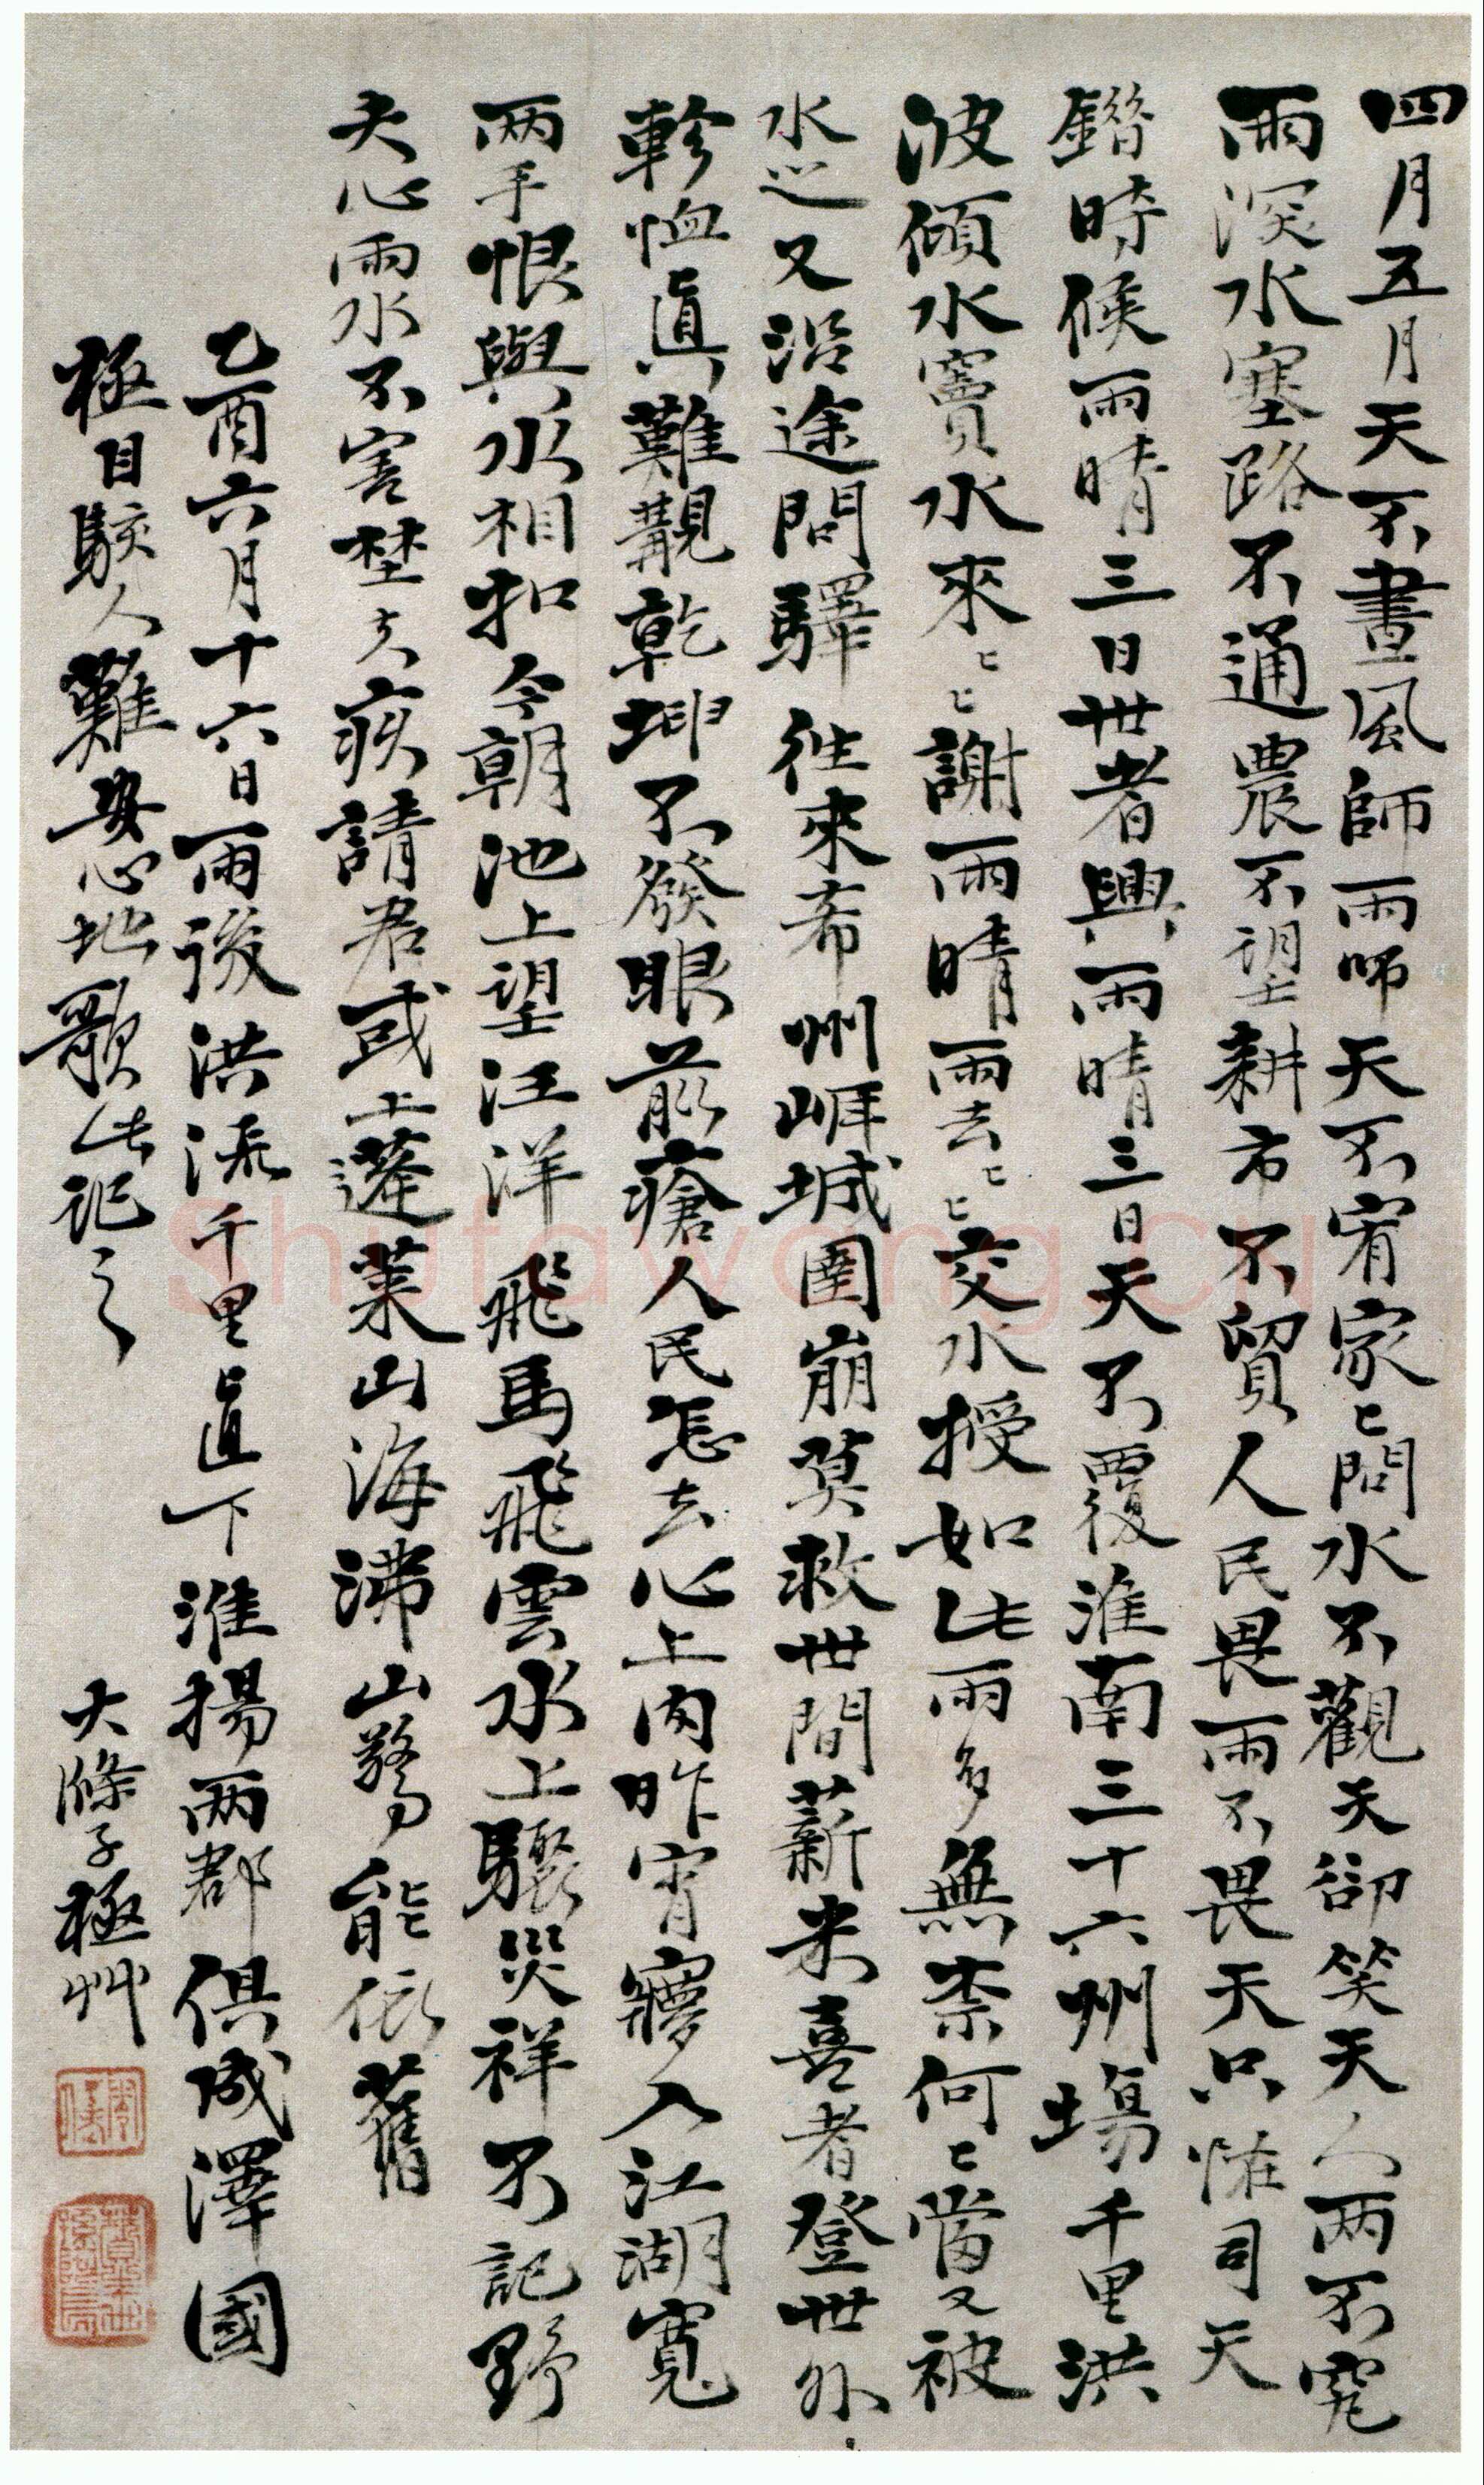 四月五月天不晝風師雨師天不宥家〻問水不觀天卻笑天人兩不究
雨深水塞路不通農不望耕市不貿人民畏雨不畏天只怪司天
錯時候雨晴三日世者興雨晴三日天不覆淮南三十六州場千里洪
波傾水竇水來〻〻謝雨晴雨去〻〻交水授如此雨多無柰何〻當又被
水巡又沿途問驛往來希州崕城圍崩莫救世間薪米喜者登世外
軫恤真難覯乾坤不發眼前瘡人民怎去心上肉昨宵寢入江湖寬
兩手恨與水相扣今朝池上望汪洋飛馬飛雲水上驟災祥不記野
夫心雨水不害埜夫疾請君或上蓬萊山海沸山驚能依舊
乙酉六月十六日雨後洪流千里直下淮揚兩郡俱成澤國
極目駭人難安心地歌此記之
大滌子極艸